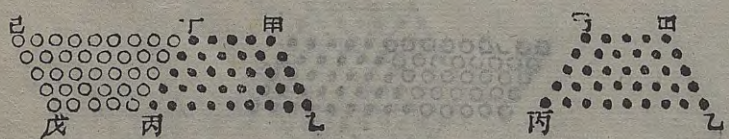 己 丁 甲 丁 甲
戊 丙 乙 丙 乙